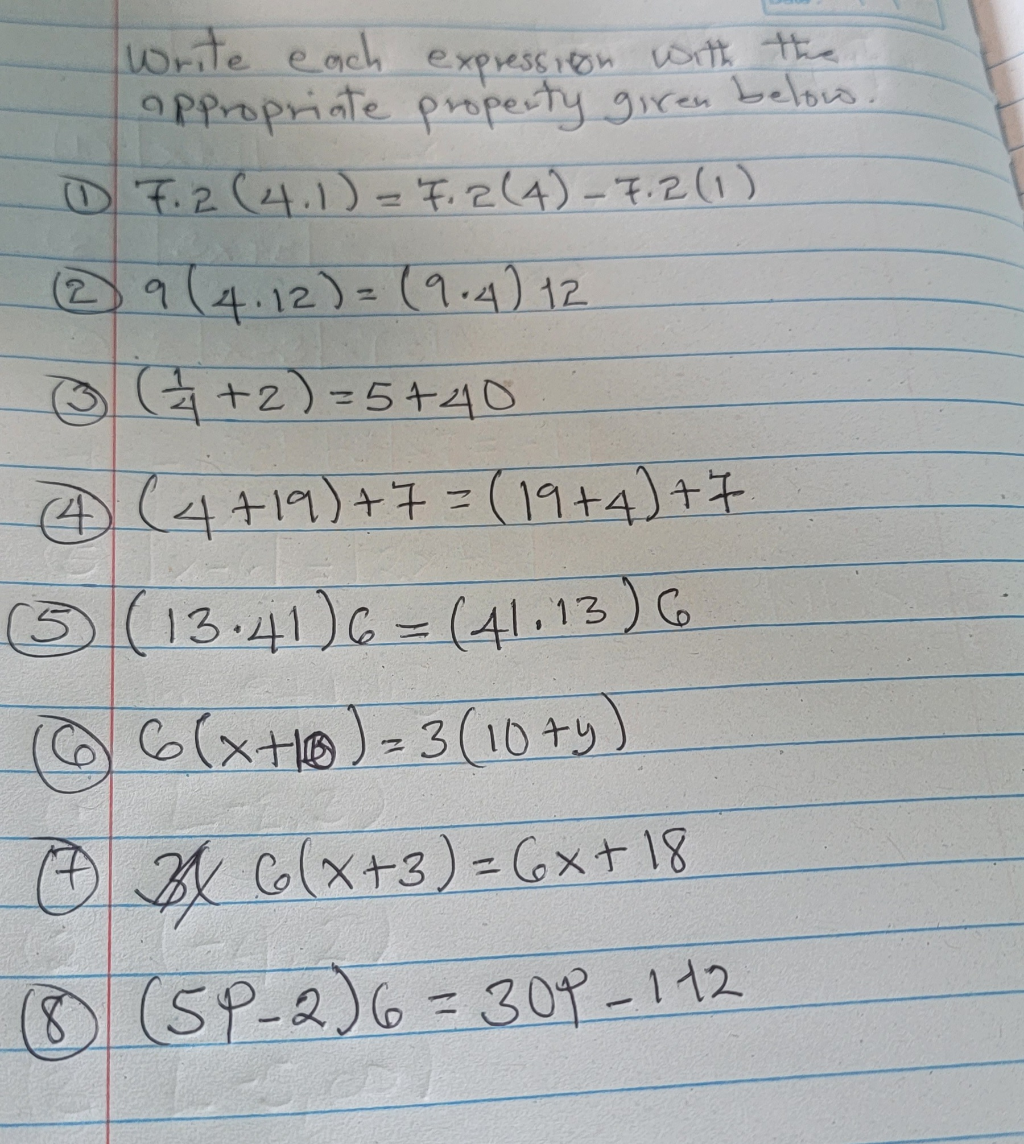 Write each expression with the
appropriate property given below.
① 7.2(4.1) = 7.2(4) - 7.2(1)
② 9(4.12) = (9.4)12
③ (1/4 + 2) = 5 + 40
④ (4 + 19) + 7 = (19 + 4) + 7
⑤ (13.41)6 = (41.13)6
⑥ 6(x+10) = 3(10+y)
⑦ 6(x+3) = 6x + 18
⑧ (5p-2)6 = 30p - 112